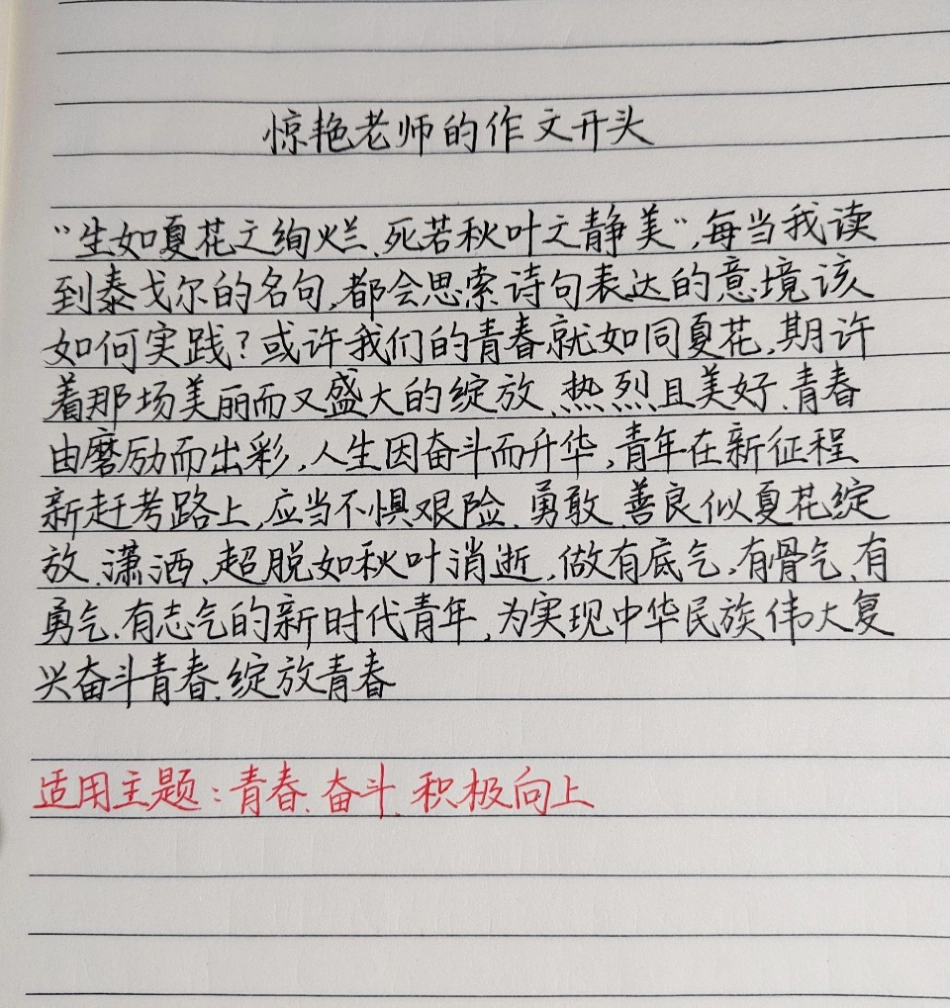 惊艳老师的作文开头
“生如夏花之绚烂、死若秋叶之静美”,每当我读
到泰戈尔的名句,都会思索诗句表达的意境该
如何实践?或许我们的青春就如同夏花,期许
着那场美丽而又盛大的绽放、热烈且美好、青春
由磨励而出彩,人生因奋斗而升华,青年在新征程
新赶考路上,应当不惧艰险、勇敢、善良似夏花绽
放、潇洒、超脱如秋叶消逝,做有底气,有骨气、有
勇气、有志气的新时代青年,为实现中华民族伟大复
兴奋斗青春、绽放青春
适用主题:青春、奋斗、积极向上